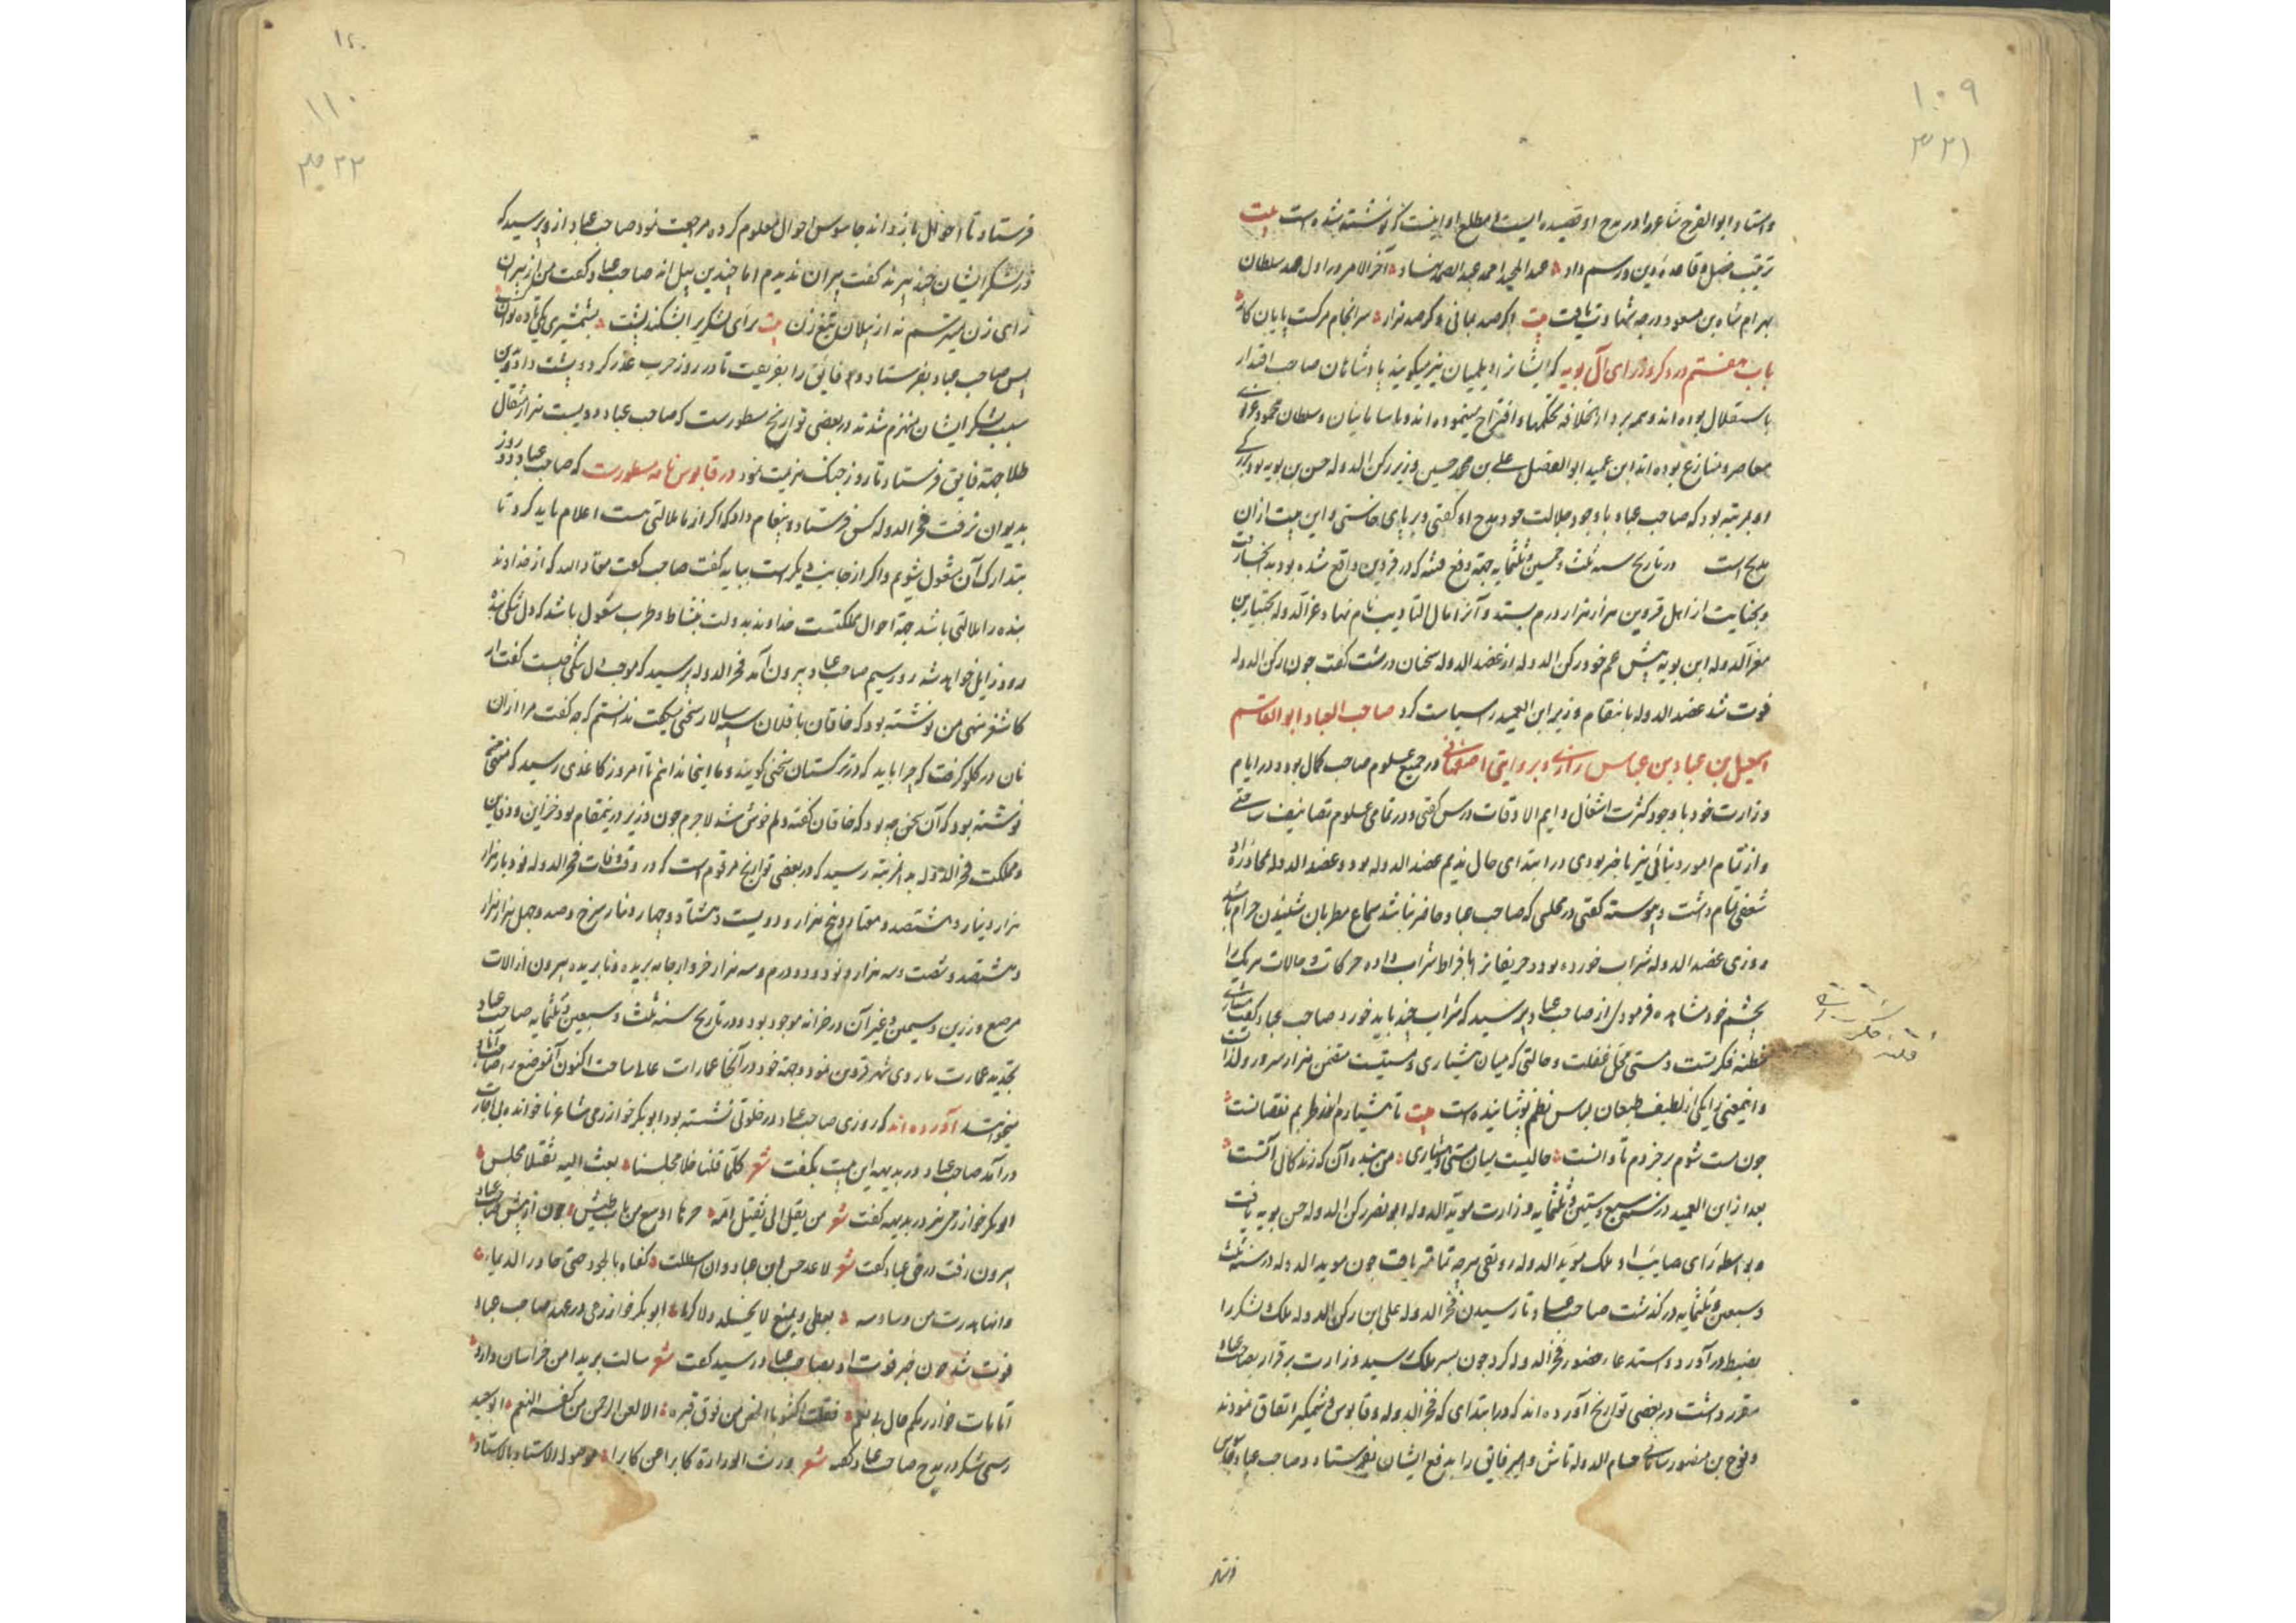 ۱۰۹
۳۲۱
واستاد ابوالفرج شاعر را در مدح او قصیده ایست که مطلع او اینست که نوشته شده است بیت
ترتیب فضل و قاعده دین و رسم داد عبدالحمید احمد عبدالصمد نهاد آخر الامر در اول عهد سلطان
بهرام شاه بن مسعود درجه شهادت یافت بیت اگر صد بمانی و گر صد هزار سرانجام مرگست پایان کار
باب هفتم در ذکر وزرای آل بویه که ایشانرا دیلمیان نیز میگویند پادشاهان صاحب اقتدار
باستقلال بوده اند و همه بر دار الخلافه تحکمها و اقتراح مینموده اند و با سامانیان و سلطان محمود غزنوی
معاصر و منازع بوده اند ابن عمید ابوالفضل علی بن محمد حسین وزیر رکن الدوله حسن بن بویه بود
و بمرتبه بود که صاحب عباد با وجود جلالت خود مدح او گفتی و بر پای خاستی و این بیت از آن
مدیح است در تاریخ سنه ثلث و خمسین و ثلثمایه جهة دفع فتنه که در قزوین واقع شده بود بدانجا رفت
و بجنایت از اهل قزوین هزار هزار درم بستد و آنرا مال التادیب نام نهاد عزالدوله بختیار بن
معزالدوله ابن بویه پیش عم خود رکن الدوله از عضدالدوله سخنان درشت گفت چون رکن الدوله
فوت شد عضدالدوله بانتقام وزیر ابن العمید را سیاست کرد صاحب العباد ابوالقاسم
اسمعیل بن عباد بن عباس رازی و بروایتی اصفهانی در جمیع علوم صاحب کمال بود و در ایام
وزارت خود با وجود کثرت اشغال دایم الاوقات درس گفتی و در تمامی علوم تصانیف ساختی
و از تمام امور دنیائی نیز باخبر بودی در ابتدای حال ندیم عضدالدوله بود و عضدالدوله بمحاوره او
شعفی تمام داشت و پیوسته گفتی در مجلسی که صاحب عباد حاضر نباشد سماع مطربان شنیدن حرام باشد
روزی عضدالدوله شراب خورده بود و حریفانرا بافراط شراب داده حرکات و حالات هر یک را
بچشم خود مشاهده فرمود پس از صاحب عباد پرسید که شراب چند باید خورد صاحب عباد گفت
مظنه فکرتست و مستی محل غفلت و حالتی که میان هشیاری و مستیست متضمن هزار سرور و لذات
و این معنی را یکی از لطیف طبعان لباس نظم پوشانیده است بیت تا هشیارم در طربم نقصانست
چون مست شوم بر خردم تاوانست حالیست میان مستی و هشیاری من بنده آن که زندگانی آنست
بعد از ابن العمید در سنه سبع و ستین و ثلثمایه وزارت مویدالدوله ابونصر رکن الدوله حسن بویه یافت
و بواسطه رای صایب او ملک مویدالدوله رونقی هرچه تمامتر یافت چون مویدالدوله در سنه ثلث
و سبعین و ثلثمایه درگذشت صاحب عباد تا رسیدن فخرالدوله علی ابن رکن الدوله ملک و لشکر را
بضبط درآورد و استدعا حضور فخرالدوله کرد چون بسر ملک رسید وزارت برقرار بصاحب عباد
مقرر داشت در بعضی تواریخ آورده اند که در ابتدای که فخرالدوله و قابوس وشمگیر اتفاق نمودند
و نوح بن منصور سامانی حسام الدوله تاش و امیر فایق را بدفع ایشان بفرستاد و صاحب عباد جاسوس
۱۱۰
۳۲۲
فرستاد تا احوال بازداند جاسوس احوال معلوم کرده مراجعت نمود صاحب عباد از وی پرسید که
در لشکر ایشان چند پیرند گفت پیران ندیدم اما چندین پیل اند صاحب عباد گفت من از پیران
رای زن میترسم نه از پیلان تیغ زن بیت برای لشکری را بشکند پشت بشمشیری یکی تا ده توان کشت
پس صاحب عباد بفرستاد و فایق را بفریفت تا در روز حرب غدر کرد و پشت داد و بدین
سبب لشکر ایشان منهزم شدند در بعضی تواریخ مسطورست که صاحب عباد دویست هزار مثقال
طلا جهة فایق فرستاد تا روز جنگ هزیمت نمود در قابوس نامه مسطورست که صاحب عباد دو روز
بدیوان نرفت فخرالدوله کس فرستاد و پیغام داد که اگر از ما ملالتی هست اعلام باید کرد تا
بتدارک آن مشغول شویم و اگر از جانب دیگرست بباید گفت صاحب گفت معاذ الله که از خداوند
بنده را ملالتی باشد جهة احوال مملکتست خداوند بدولت بنشاط و طرب مشغول باشد که دل تنگی بنده
زود زایل خواهد شد روز سیم صاحب عباد بیرون آمد فخرالدوله پرسید که موجب دل تنگی چیست گفت از
کاشغر منهی من نوشته بود که خاقان با فلان سپه سالار سخنی میگفت ندانستم که چه گفت مرا از آن
نان در گلو گرفت که چرا باید که در ترکستان سخنی گویند و ما اینجا ندانیم تا امروز کاغذی رسید که منهی
نوشته بود که آن سخن چه بود که خاقان گفته دلم خوش شد لاجرم چون وزیر در ینمقام بود خزاین و دفاین
و مملکت فخرالدوله بدان مرتبه رسید که در بعضی تواریخ مرقوم است که در وقت وفات فخرالدوله
هزار دینار و هشتصد و هفتاد و پنج هزار و دویست و هشتاد و چهار دینار سرخ و صد و چهل هزار هزار
و هشتصد و شصت و سه هزار و نود و دو درم و سه هزار خروار جامه بریده و نابریده بیرون از الات
مرصع و زرین و سیمین و غیر آن در خزانه موجود بود و در تاریخ سنه ثلث و سبعین و ثلثمایه صاحب عباد
تجدید عمارت باروی شهر قزوین نمود و جهة خود در آنجا عمارات عالی ساخت اکنون آنموضع را
میخوانند آورده اند که روزی صاحب عباد در خلوتی نشسته بود ابوبکر خوارزمی شاعر ناخوانده بی اجازت
درآمد صاحب عباد در بدیهه این بیت بگفت شعر کلما قلنا خلا مجلسنا بعث الیه ثقیلا مجلس
ابوبکر خوارزمی نیز در بدیهه گفت شعر
بیرون رفت در حق عباد گفت شعر لا تحمدن ابن عباد وان هطلت کفاه بالجود حتی جاوز الدیما
وانها خطرت من وساوسه یعطی و یمنع لا بخلا ولا کرما ابوبکر خوارزمی در عهد صاحب عباد
فوت شد چون خبر فوت او بصاحب عباد رسید گفت شعر سالت بریدا من خراسان وارد
امات خوارزمیکم قال لی نعم فقلت اکتبوا بالجص من فوق قبره الا لعن الرحمن من کفر النعم ابو سعید
رستمی شکر در مدح صاحب عباد گوید شعر ورث الوزارة کابرا عن کابر موصولة الاسناد بالاسناد